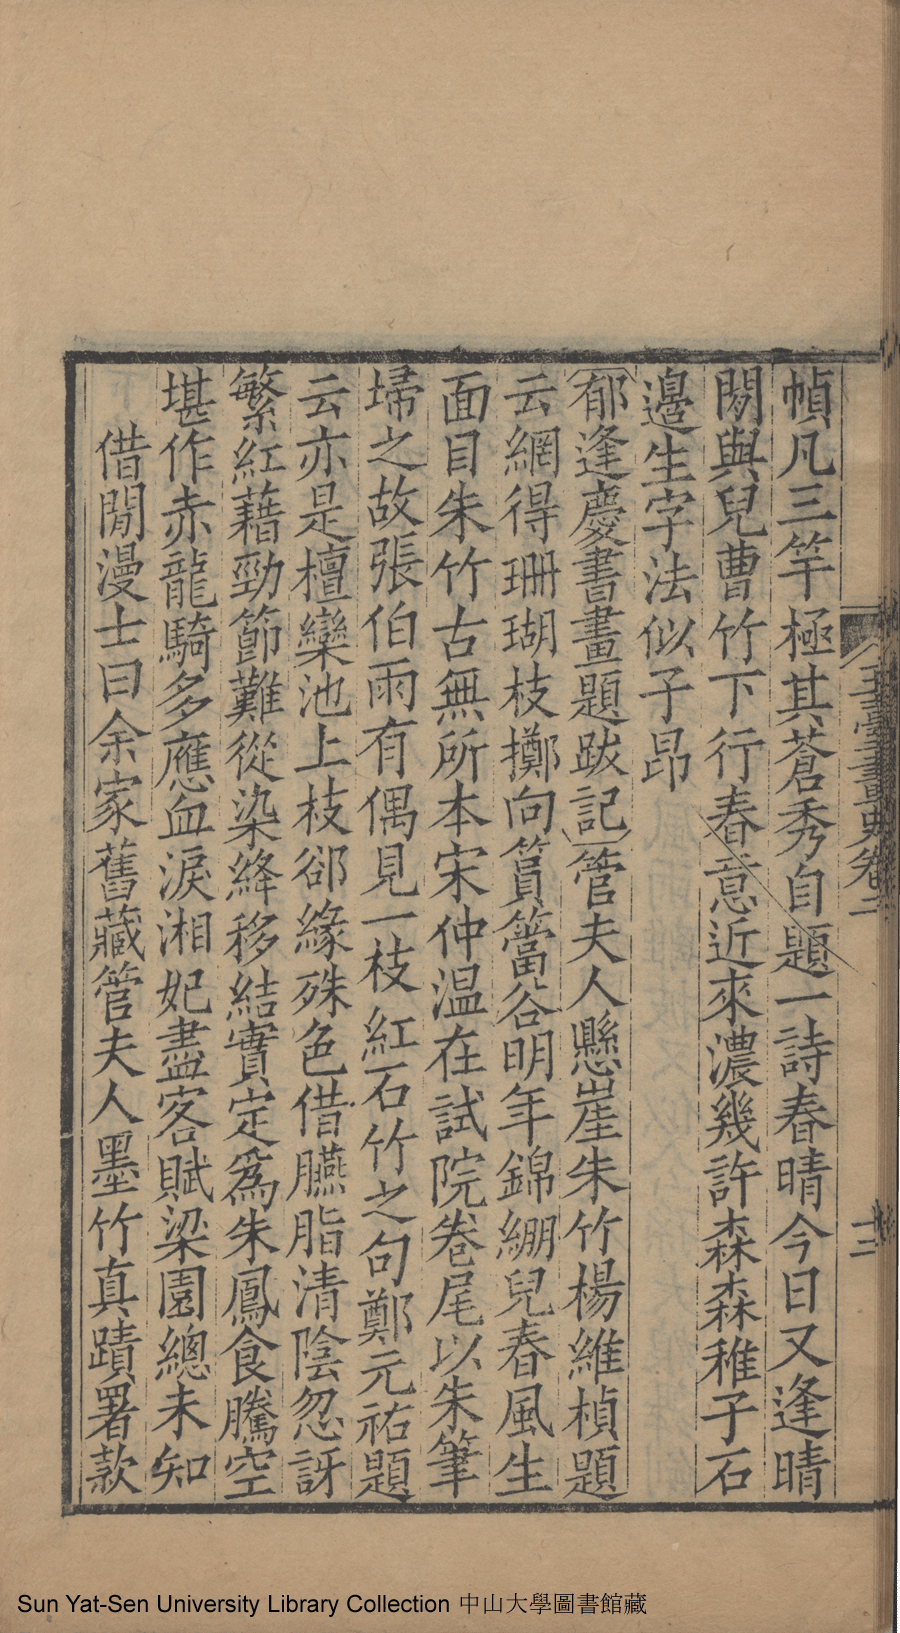 幀凡三竿極其蒼秀自題一詩春晴今日又逢晴
閒與兒曹竹下行春意近來濃幾許森森稚子石
邉生字法似子昂
郁逢慶書畫題跋記管夫人懸崖朱竹楊維楨題
云網得珊瑚枝擲向篔簹谷明年錦綳兒春風生
面目朱竹古無所本宋仲温在試院卷尾以朱筆
埽之故張伯雨有偶見一枝紅石竹之句鄭元祐題
云亦是檀欒池上枝郤緣殊色借臙脂清陰忽訝
繁紅藉勁節難從染絳移結實定爲朱鳳食騰空
堪作赤龍騎多應血淚湘妃盡客賦梁園總未知
借閒漫士曰余家舊藏管夫人墨竹真蹟署款
玉臺畫史卷二
十二
Sun Yat-Sen University Library Collection 中山大學圖書館藏